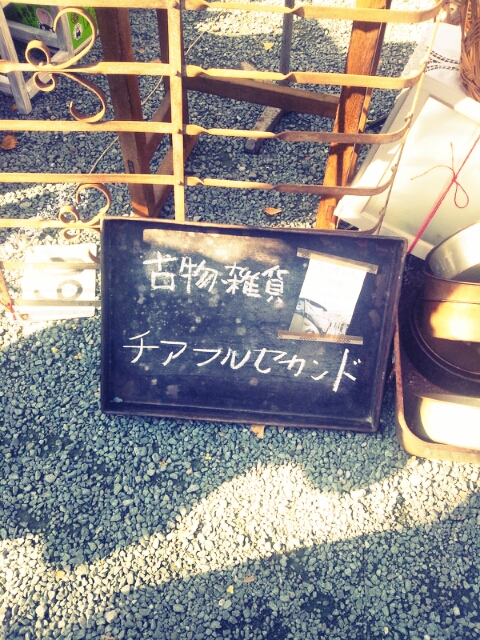 古物・雑貨
チアフルセカンド